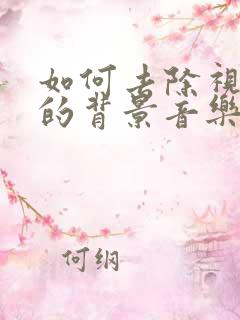 如何去除視
的背景音樂
何纲